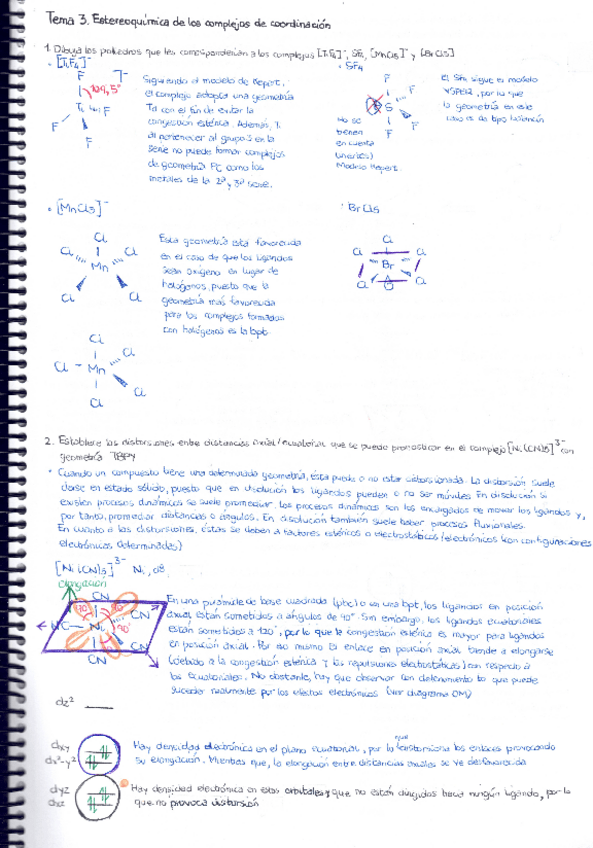 Tema 3. Estereoquímica de los complejos de coordinación
1. Dibuja los poliedros que les corresponderían a los complejos [TiF4]⁻, SF4, [MnCl5]⁻ y [BrCl5]
• [TiF4]⁻
F
109,5°
Ti
F
F
F
Siguiendo el modelo de Kepert,
el complejo adopta una geometría
Td con el fin de evitar la
congestión estérica. Además, Ti
al pertenecer al grupo
serie no puede formar complejos
de geometría PC como los
metales de la 2ª y 3ª serie.
• SF4
F
F
S
F
F
No se
tienen
en cuenta
Modelo Kepert.
El SF4 sigue el modelo
VSEPR, por lo que
la geometría en este
caso es de tipo balancín
• [MnCl5]⁻
Cl
Cl
Cl
Mn
Cl
Cl
Esta geometría está favorecida
en el caso de que los ligandos
sean oxígeno en lugar de
halógenos, puesto que la
geometría más favorecida
para los complejos formados
con halógenos es la bpt.
• BrCl5
Cl
Cl
Cl
Br
Cl
Cl
Cl
Cl
Cl - Mn
Cl
Cl
2. Establece las distorsiones entre distancias axial/ecuatorial que se puede pronosticar en el complejo [Ni(CN)5]³⁻ con
geometría TBPY
• Cuando un compuesto tiene una determinada geometría, ésta puede o no estar distorsionada. La distorsión suele
darse en estado sólido, puesto que en disolución los ligandos pueden o no ser móviles. En disolución si
existen procesos dinámicos se suele promediar. Los procesos dinámicos son los encargados de mover los ligandos y,
por tanto, promediar distancias o ángulos. En disolución también suele haber procesos fluxionales.
En cuanto a las distorsiones, éstas se deben a factores estéricos o electrostáticos/electrónicos (con configuraciones
electrónicas determinadas)
[Ni(CN)5]³⁻ Ni, d8
elongación
CN
90°
90°
CN
NC
Ni
90°
CN
CN
En una pirámide de base cuadrada (pbc) o en una bpt, los ligandos en posición
axial están sometidos a ángulos de 90°. Sin embargo, los ligandos ecuatoriales
están sometidos a 120°, por lo que la congestión estérica es mayor para ligandos
en posición axial. Por eso mismo el enlace en posición axial tiende a elongarse
(debido a la congestión estérica y las repulsiones electrostáticas) con respecto a
los ecuatoriales. No obstante, hay que observar con detenimiento lo que puede
suceder realmente por los efectos electrónicos (ver diagrama OM)
dz²
dxy
dx²-y²
Hay densidad electrónica en el plano ecuatorial, por lo los enlaces provocando
su elongación. Mientras que, la elongación entre distancias axiales se ve desfavorecida
dyz
dxz
Hay densidad electrónica en estos orbitales y que no están dirigidos hacia ningún ligando, por lo
que no provoca distorsión